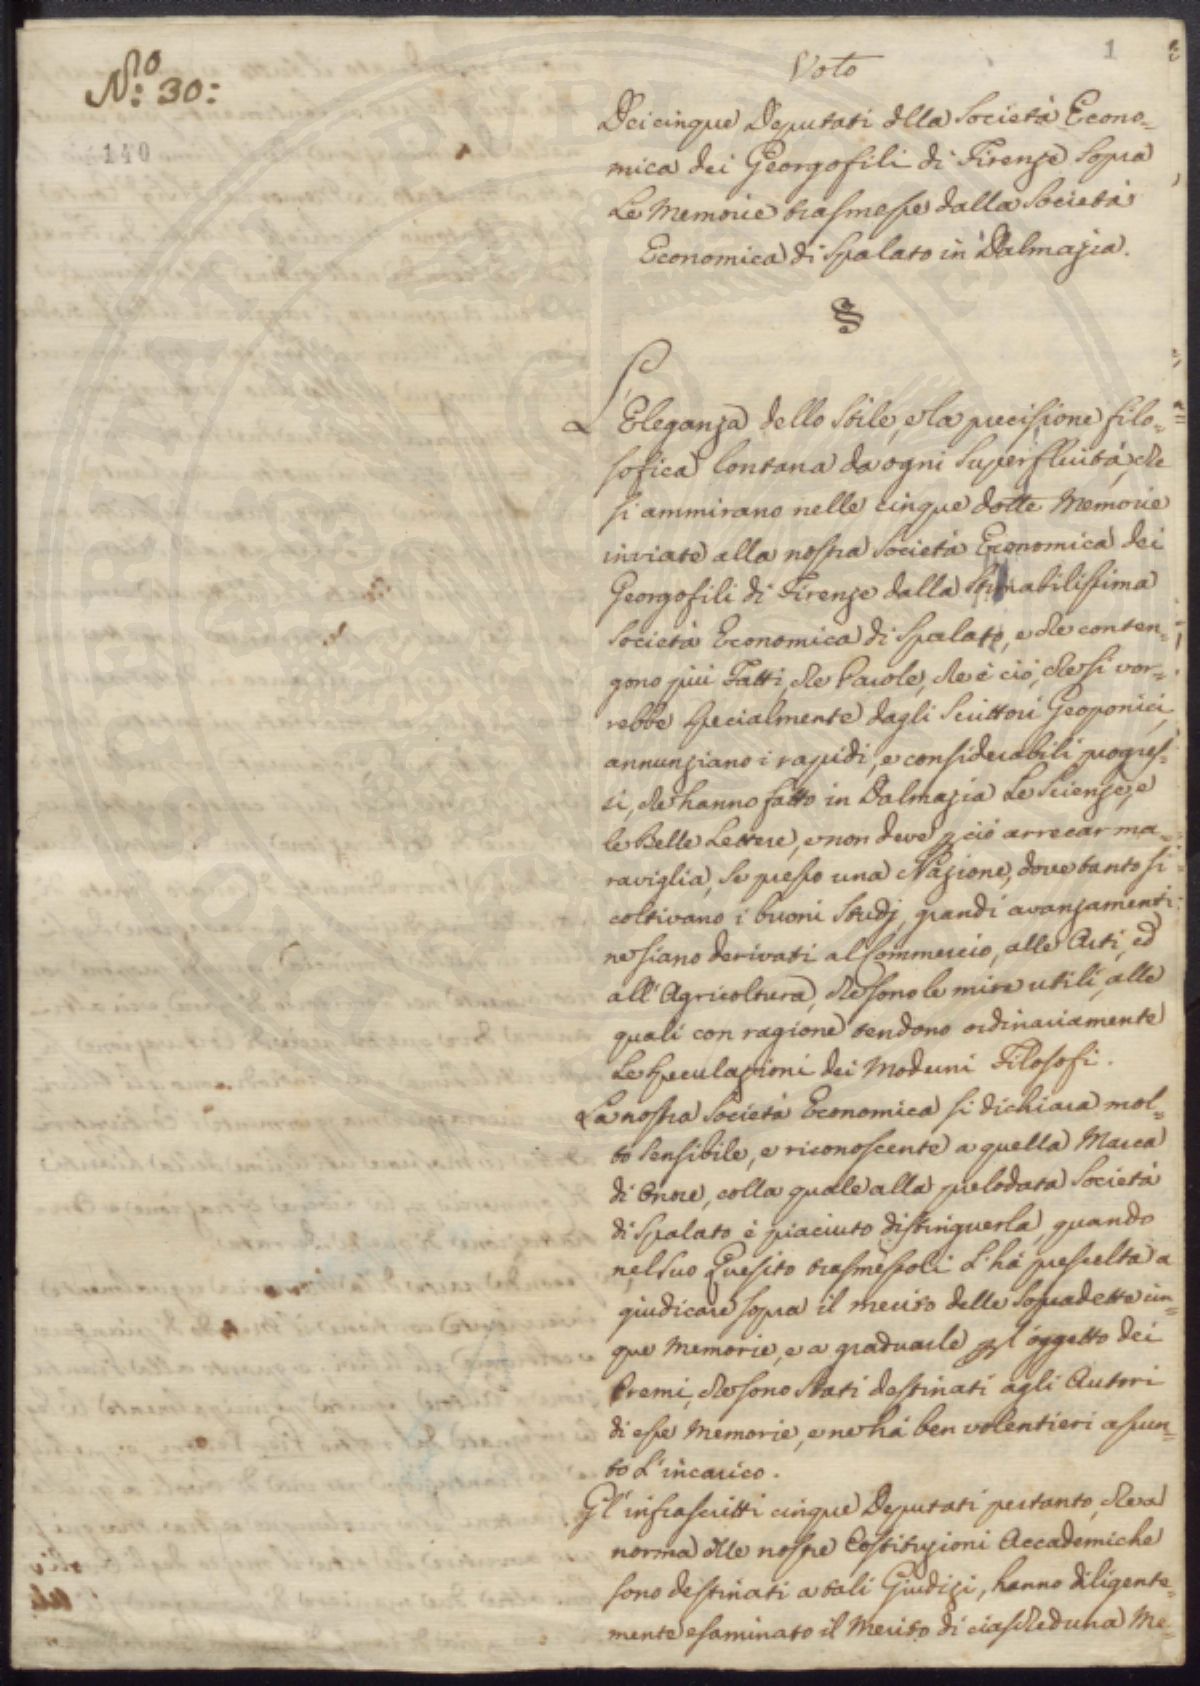 No: 30:
140
1
Voto
Dei cinque Deputati dlla Società Econo=
mica dei Georgofili di Firenze sopra
Le Memorie trasmesse dalla Società
Economica di Spalato in Dalmazia.
L'Eleganza dello Stile, e la precisione filo=
sofica lontana da ogni superfluità, che
si ammirano nelle cinque dotte Memorie
inviate alla nostra Società Economica dei
Georgofili di Firenze dalla Stimabilissima
Società Economica di Spalato, e che conten=
gono più Fatti, che Parole, che è ciò, che si vor=
rebbe specialmente dagli Scrittori Geoponici,
annunziano i rapidi, e considerabili progres=
si, che hanno fatto in Dalmazia Le Scienze, e
le Belle Lettere, e non deve p ciò arrecar ma=
raviglia, se presso una Nazione, dove tanto si
coltivano i buoni Studj, grandi avanzamenti
ne siano derivati al Commercio, alle Arti, ed
all'Agricoltura, che sono le mire utili, alle
quali con ragione tendono ordinariamente
Le speculazioni dei Moderni Filosofi.
La nostra Società Economica si dichiara mol=
to sensibile, e riconoscente a quella Marca
di Onore, colla quale alla prelodata Società
di Spalato è piaciuto distinguerla, quando
nel suo Quesito trasmessoli L'hà prescelta a
giudicare sopra il merito delle sopradette cin=
que Memorie, e a graduarle p l'oggetto dei
Premi, che sono stati destinati agli Autori
di esse Memorie, e ne hà ben volentieri assun=
to L'incarico.
Gl'infrascritti cinque Deputati pertanto, che a
norma dlle nostre Costituzioni Accademiche
sono destinati a tali Giudizi, hanno diligente=
mente esaminato il Merito di ciascheduna Me=